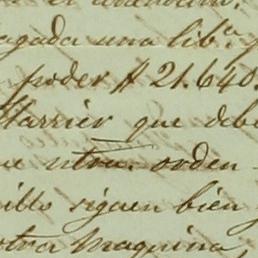 agada una lib.ª y
poder # 21.640.
Harrier que deb
ntra. orden
illo siguen bien
otra Maquina,